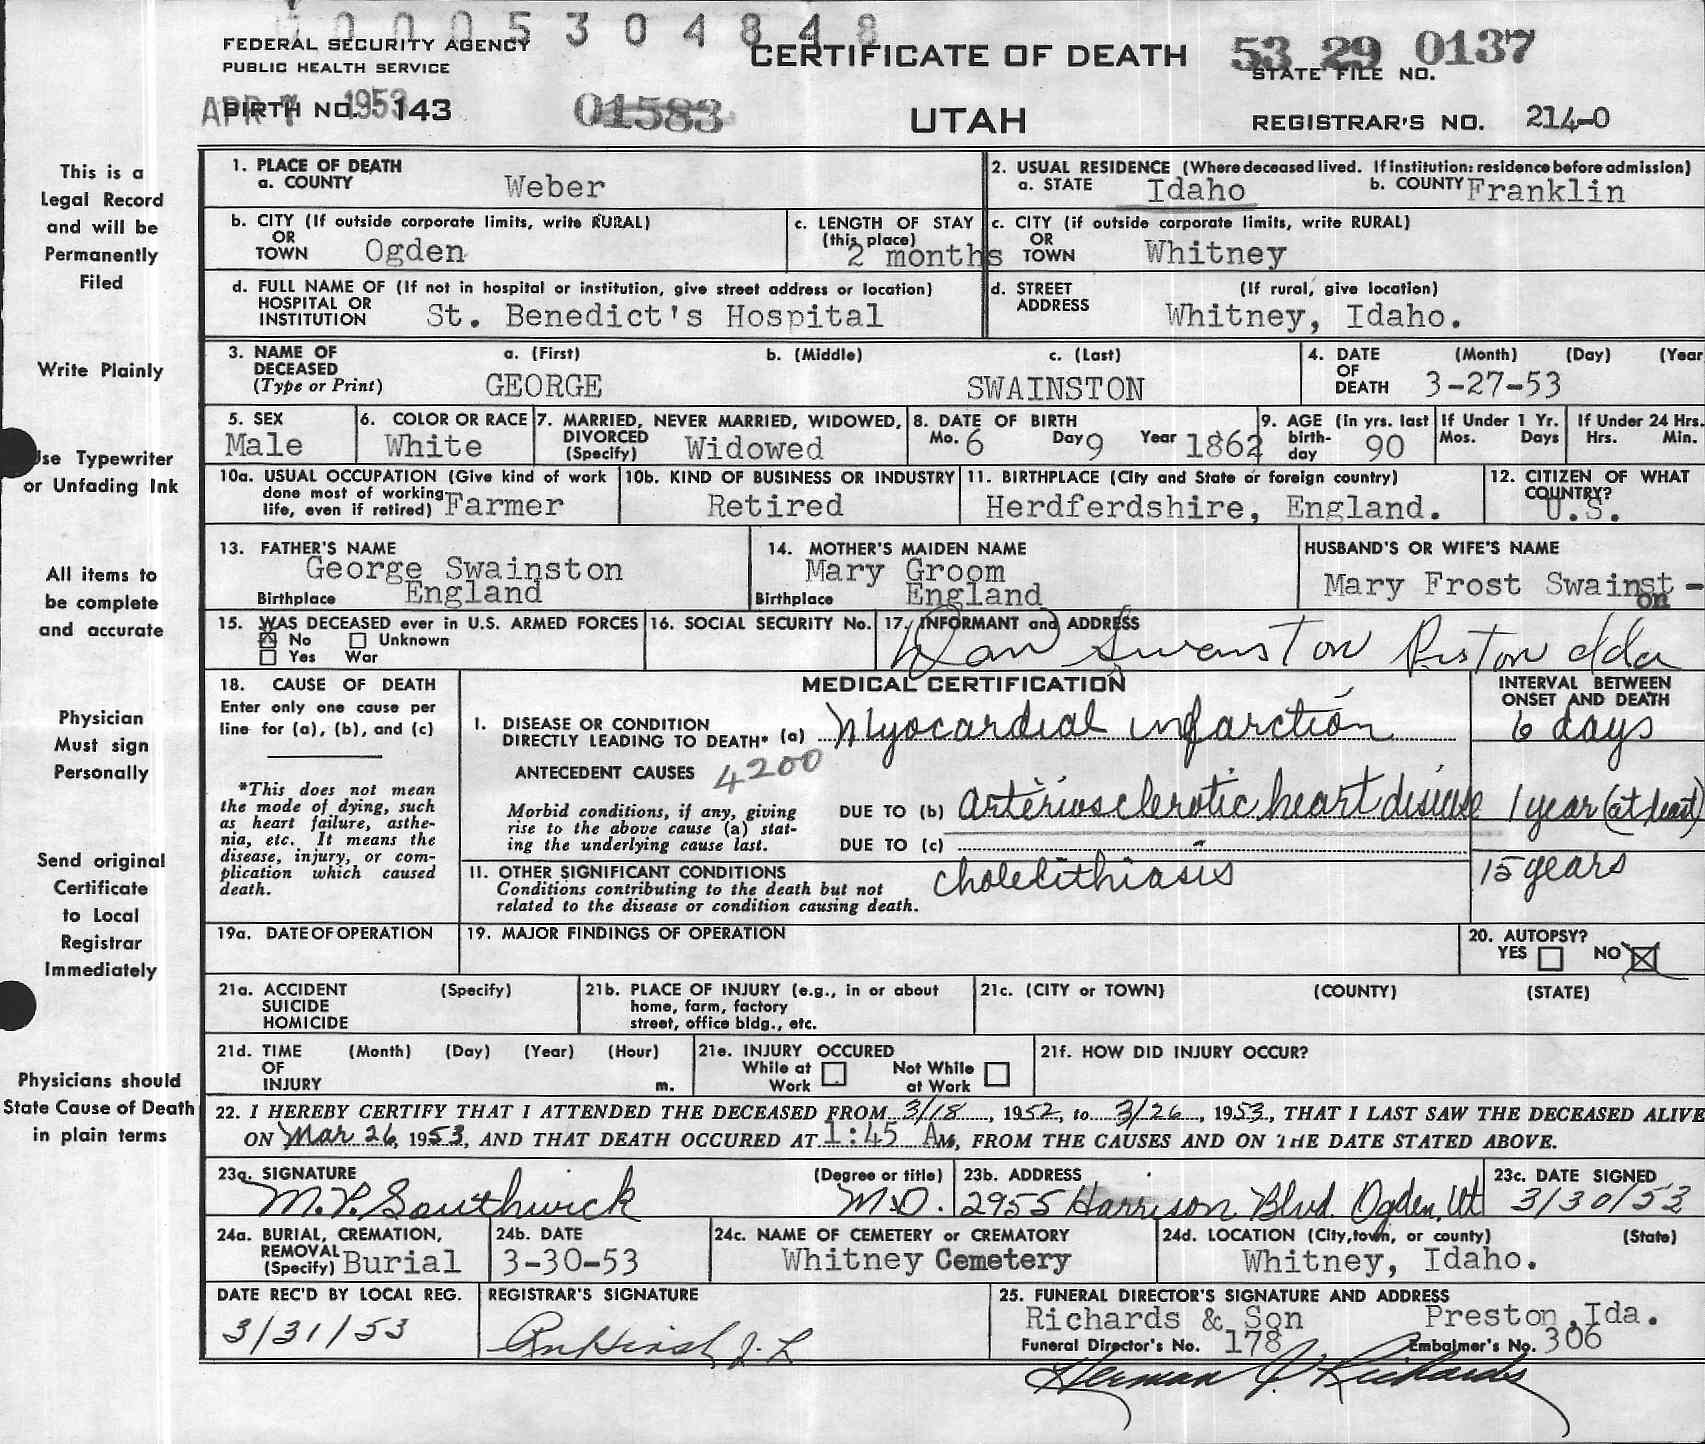 1 0 0 0 5 3 0 4 8 4 8
FEDERAL SECURITY AGENCY
PUBLIC HEALTH SERVICE
CERTIFICATE OF DEATH
53 29 0137
STATE FILE NO.
APR 7 1953
BIRTH NO. 143
01583
UTAH
REGISTRAR'S NO. 214-0
This is a
Legal Record
and will be
Permanently
Filed
Write Plainly
Use Typewriter
or Unfading Ink
All items to
be complete
and accurate
Physician
Must sign
Personally
Send original
Certificate
to Local
Registrar
Immediately
Physicians should
State Cause of Death
in plain terms
1. PLACE OF DEATH
a. COUNTY Weber
2. USUAL RESIDENCE (Where deceased lived. If institution: residence before admission)
a. STATE Idaho b. COUNTY Franklin
b. CITY (If outside corporate limits, write RURAL)
OR
TOWN Ogden
c. LENGTH OF STAY
(this place)
2 months
c. CITY (if outside corporate limits, write RURAL)
OR
TOWN Whitney
d. FULL NAME OF (If not in hospital or institution, give street address or location)
HOSPITAL OR
INSTITUTION St. Benedict's Hospital
d. STREET (If rural, give location)
ADDRESS Whitney, Idaho.
3. NAME OF a. (First) b. (Middle) c. (Last)
DECEASED
(Type or Print) GEORGE SWAINSTON
4. DATE (Month) (Day) (Year
OF
DEATH 3-27-53
5. SEX
Male
6. COLOR OR RACE
White
7. MARRIED, NEVER MARRIED, WIDOWED,
DIVORCED
(Specify) Widowed
8. DATE OF BIRTH
Mo. 6 Day 9 Year 1862
9. AGE (in yrs. last
birth-
day 90
If Under 1 Yr.
Mos. Days
If Under 24 Hrs.
Hrs. Min.
10a. USUAL OCCUPATION (Give kind of work
done most of working
life, even if retired) Farmer
10b. KIND OF BUSINESS OR INDUSTRY
Retired
11. BIRTHPLACE (City and State or foreign country)
Herdferdshire, England.
12. CITIZEN OF WHAT
COUNTRY?
U.S.
13. FATHER'S NAME
George Swainston
Birthplace England
14. MOTHER'S MAIDEN NAME
Mary Groom
Birthplace England
HUSBAND'S OR WIFE'S NAME
Mary Frost Swainst-
on
15. WAS DECEASED ever in U.S. ARMED FORCES
No Unknown
Yes War
16. SOCIAL SECURITY No.
17. INFORMANT and ADDRESS
Dan Swanston Preston Ida
18. CAUSE OF DEATH
Enter only one cause per
line for (a), (b), and (c)
*This does not mean
the mode of dying, such
as heart failure, asthe-
nia, etc. It means the
disease, injury, or com-
plication which caused
death.
MEDICAL CERTIFICATION
INTERVAL BETWEEN
ONSET AND DEATH
I. DISEASE OR CONDITION
DIRECTLY LEADING TO DEATH* (a) Myocardial infarction 6 days
ANTECEDENT CAUSES 4200
Morbid conditions, if any, giving
rise to the above cause (a) stat-
ing the underlying cause last.
DUE TO (b) arteriosclerotic heart disease 1 year (at least)
DUE TO (c)
11. OTHER SIGNIFICANT CONDITIONS
Conditions contributing to the death but not
related to the disease or condition causing death.
cholelithiasis 15 years
19a. DATE OF OPERATION
19. MAJOR FINDINGS OF OPERATION
20. AUTOPSY?
YES NO
21a. ACCIDENT (Specify)
SUICIDE
HOMICIDE
21b. PLACE OF INJURY (e.g., in or about
home, farm, factory
street, office bldg., etc.
21c. (CITY or TOWN) (COUNTY) (STATE)
21d. TIME (Month) (Day) (Year) (Hour)
OF
INJURY m.
21e. INJURY OCCURED
While at Not While
Work at Work
21f. HOW DID INJURY OCCUR?
22. I HEREBY CERTIFY THAT I ATTENDED THE DECEASED FROM 3/18, 1952, to 3/26, 1953, THAT I LAST SAW THE DECEASED ALIVE
ON Mar 26, 1953, AND THAT DEATH OCCURED AT 1:45 AM, FROM THE CAUSES AND ON THE DATE STATED ABOVE.
23a. SIGNATURE (Degree or title)
M.P. Southwick M.D.
23b. ADDRESS
2955 Harrison Blvd. Ogden, Ut
23c. DATE SIGNED
3/30/53
24a. BURIAL, CREMATION,
REMOVAL
(Specify) Burial
24b. DATE
3-30-53
24c. NAME OF CEMETERY or CREMATORY
Whitney Cemetery
24d. LOCATION (City, town, or county) (State)
Whitney, Idaho.
DATE REC'D BY LOCAL REG.
3/31/53
REGISTRAR'S SIGNATURE
25. FUNERAL DIRECTOR'S SIGNATURE AND ADDRESS
Richards & Son Preston, Ida.
Funeral Director's No. 178 Embalmer's No. 306
Herman J. Richards